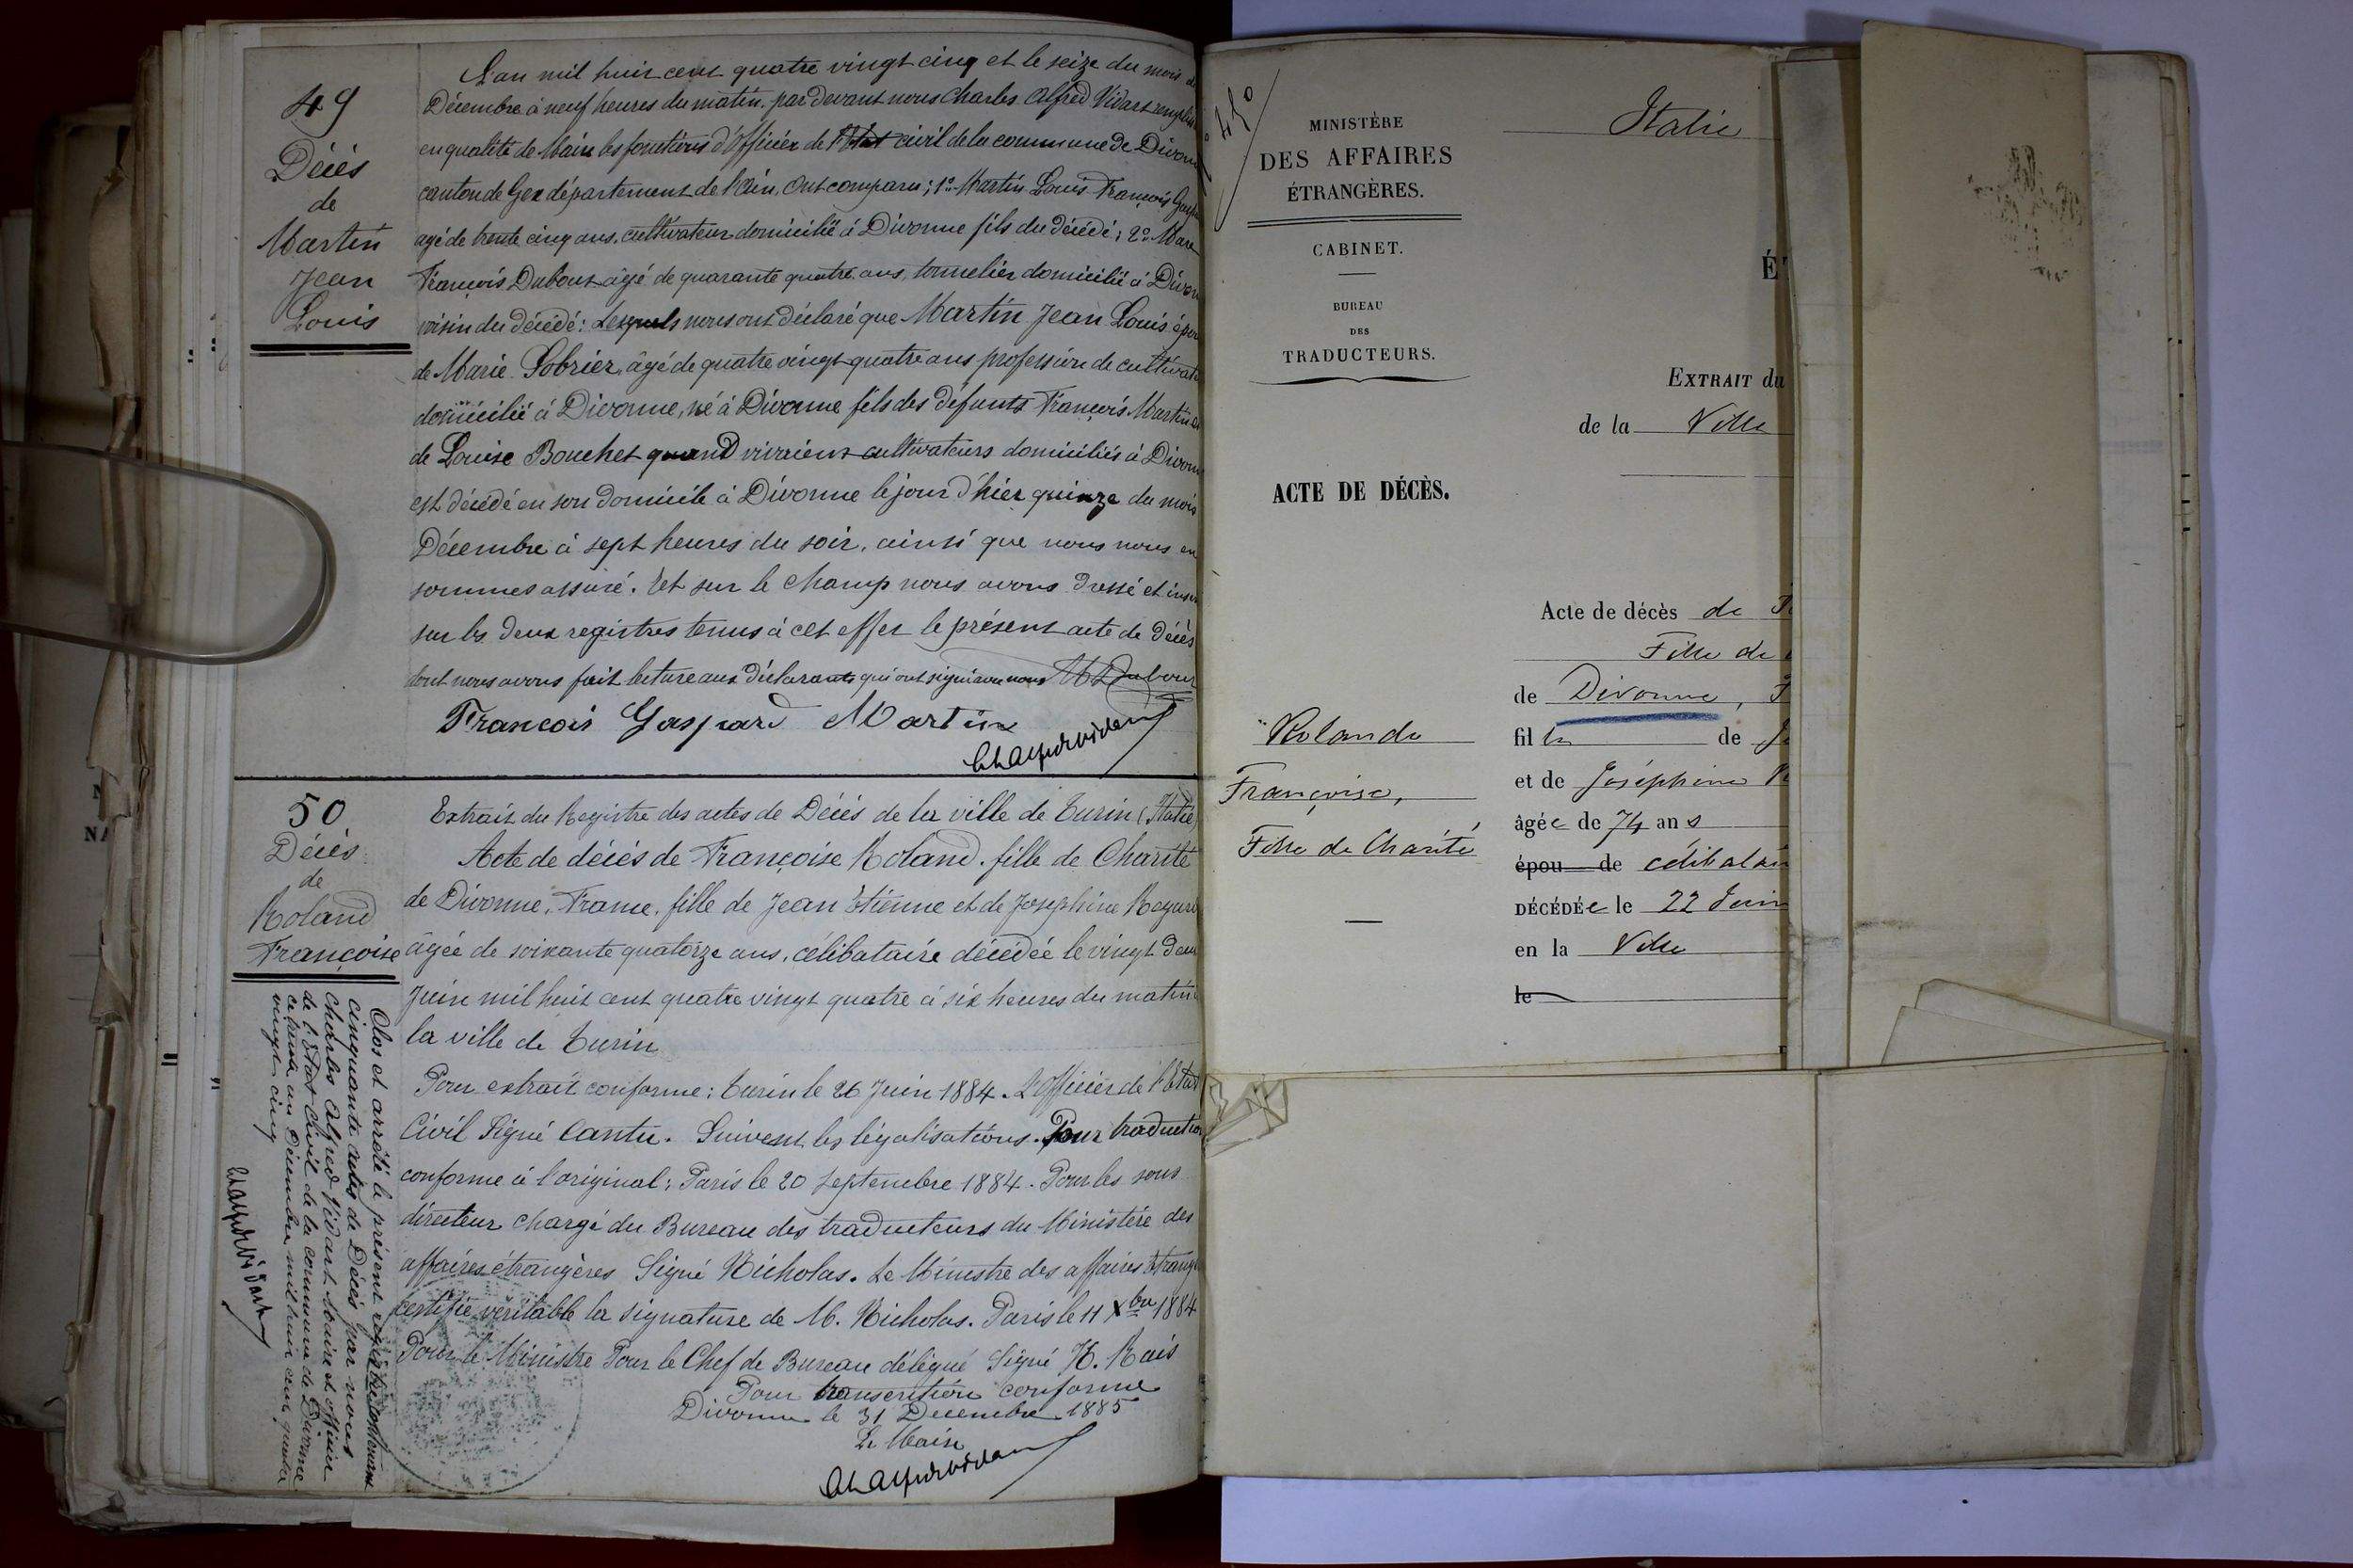 49
Décès
de
Martin
Jean
Louis
L'an mil huit cent quatre vingt cinq et le seize du mois de
Décembre à neuf heures du matin par devant nous Charles Alfred Vidart
en qualité de Maire les fonctions d'Officier de l'Etat civil de la commune de Divonne
canton de Gex département de l'Ain, Ont comparu; 1º Martin Louis François
agé de trente cinq ans, cultivateur domicilié à Divonne fils du décédé; 2º Marc
François Dubout âgé de quarante quatre ans, tonnelier domicilié à Divonne
voisin du décédé: Lesquels nous ont déclaré que Martin Jean Louis
de Marie Sobrier, âgé de quatre vingt quatre ans profession de
domicilié à Divonne, né à Divonne fils des défunts François Martin et
de Louise Bouchet quand vivaient cultivateurs domiciliés à Divonne
est décédé en son domicile à Divonne le jour d'hier quinze du mois
Décembre à sept heures du soir, ainsi que nous nous en
sommes assuré. Et sur le champ nous avons dressé et
sur les deux registres tenus à cet effet le présent acte de décès
dont nous avons fait lecture aux déclarants qui ont signé avec nous M Dubout
François Gaspard Martin
Ch Alfred Vidart
50
Décès
de
Roland
Françoise
Extrait du Registre des actes de Décès de la ville de Turin (Italie)
Acte de décès de Françoise Roland. fille de Charité
de Divonne, France, fille de Jean Etienne et de Josephine
âgée de soixante quatorze ans, célibataire décédée le vingt deux
Juin mil huit cent quatre vingt quatre à six heures du matin
la ville de Turin
Pour extrait conforme: Turin le 26 Juin 1884. L'Officier de l'Etat
Civil Signé Cantu. Suivent les légalisations. Pour traduction
conforme à l'original: Paris le 20 Septembre 1884. Pour les sous
directeur chargé du Bureau des traducteurs du Ministère des
affaires étrangères Signé Nicholas. Le Ministre des affaires
certifie véritable la signature de M. Nicholas. Paris le 11 Xbre 1884
Pour le Ministre Pour le Chef de Bureau délégué Signé H. Rais
Pour transcription conforme
Divonne le 31 Décembre 1885
Le Maire
Ch Alfred Vidart
Clos et arrêté le présent registre contenant
cinquante actes de Décès par nous
Charles Alfred Vidart Maire et officier
de l'Etat Civil de la commune de Divonne
ce trente un Décembre mil huit cent quatre
vingt cinq
Ch Alfred Vidart
MINISTÈRE
DES AFFAIRES
ÉTRANGÈRES.
CABINET.
BUREAU
DES
TRADUCTEURS.
ACTE DE DÉCÈS.
Rolando
Françoise,
Fille de Charité
Italie
EXTRAIT du
de la Ville
Acte de décès de
Fille de
de Divonne,
fille de
et de Joséphine
âgée de 74 ans
épou de
DÉCÉDÉe le 22 Juin
en la Ville
le